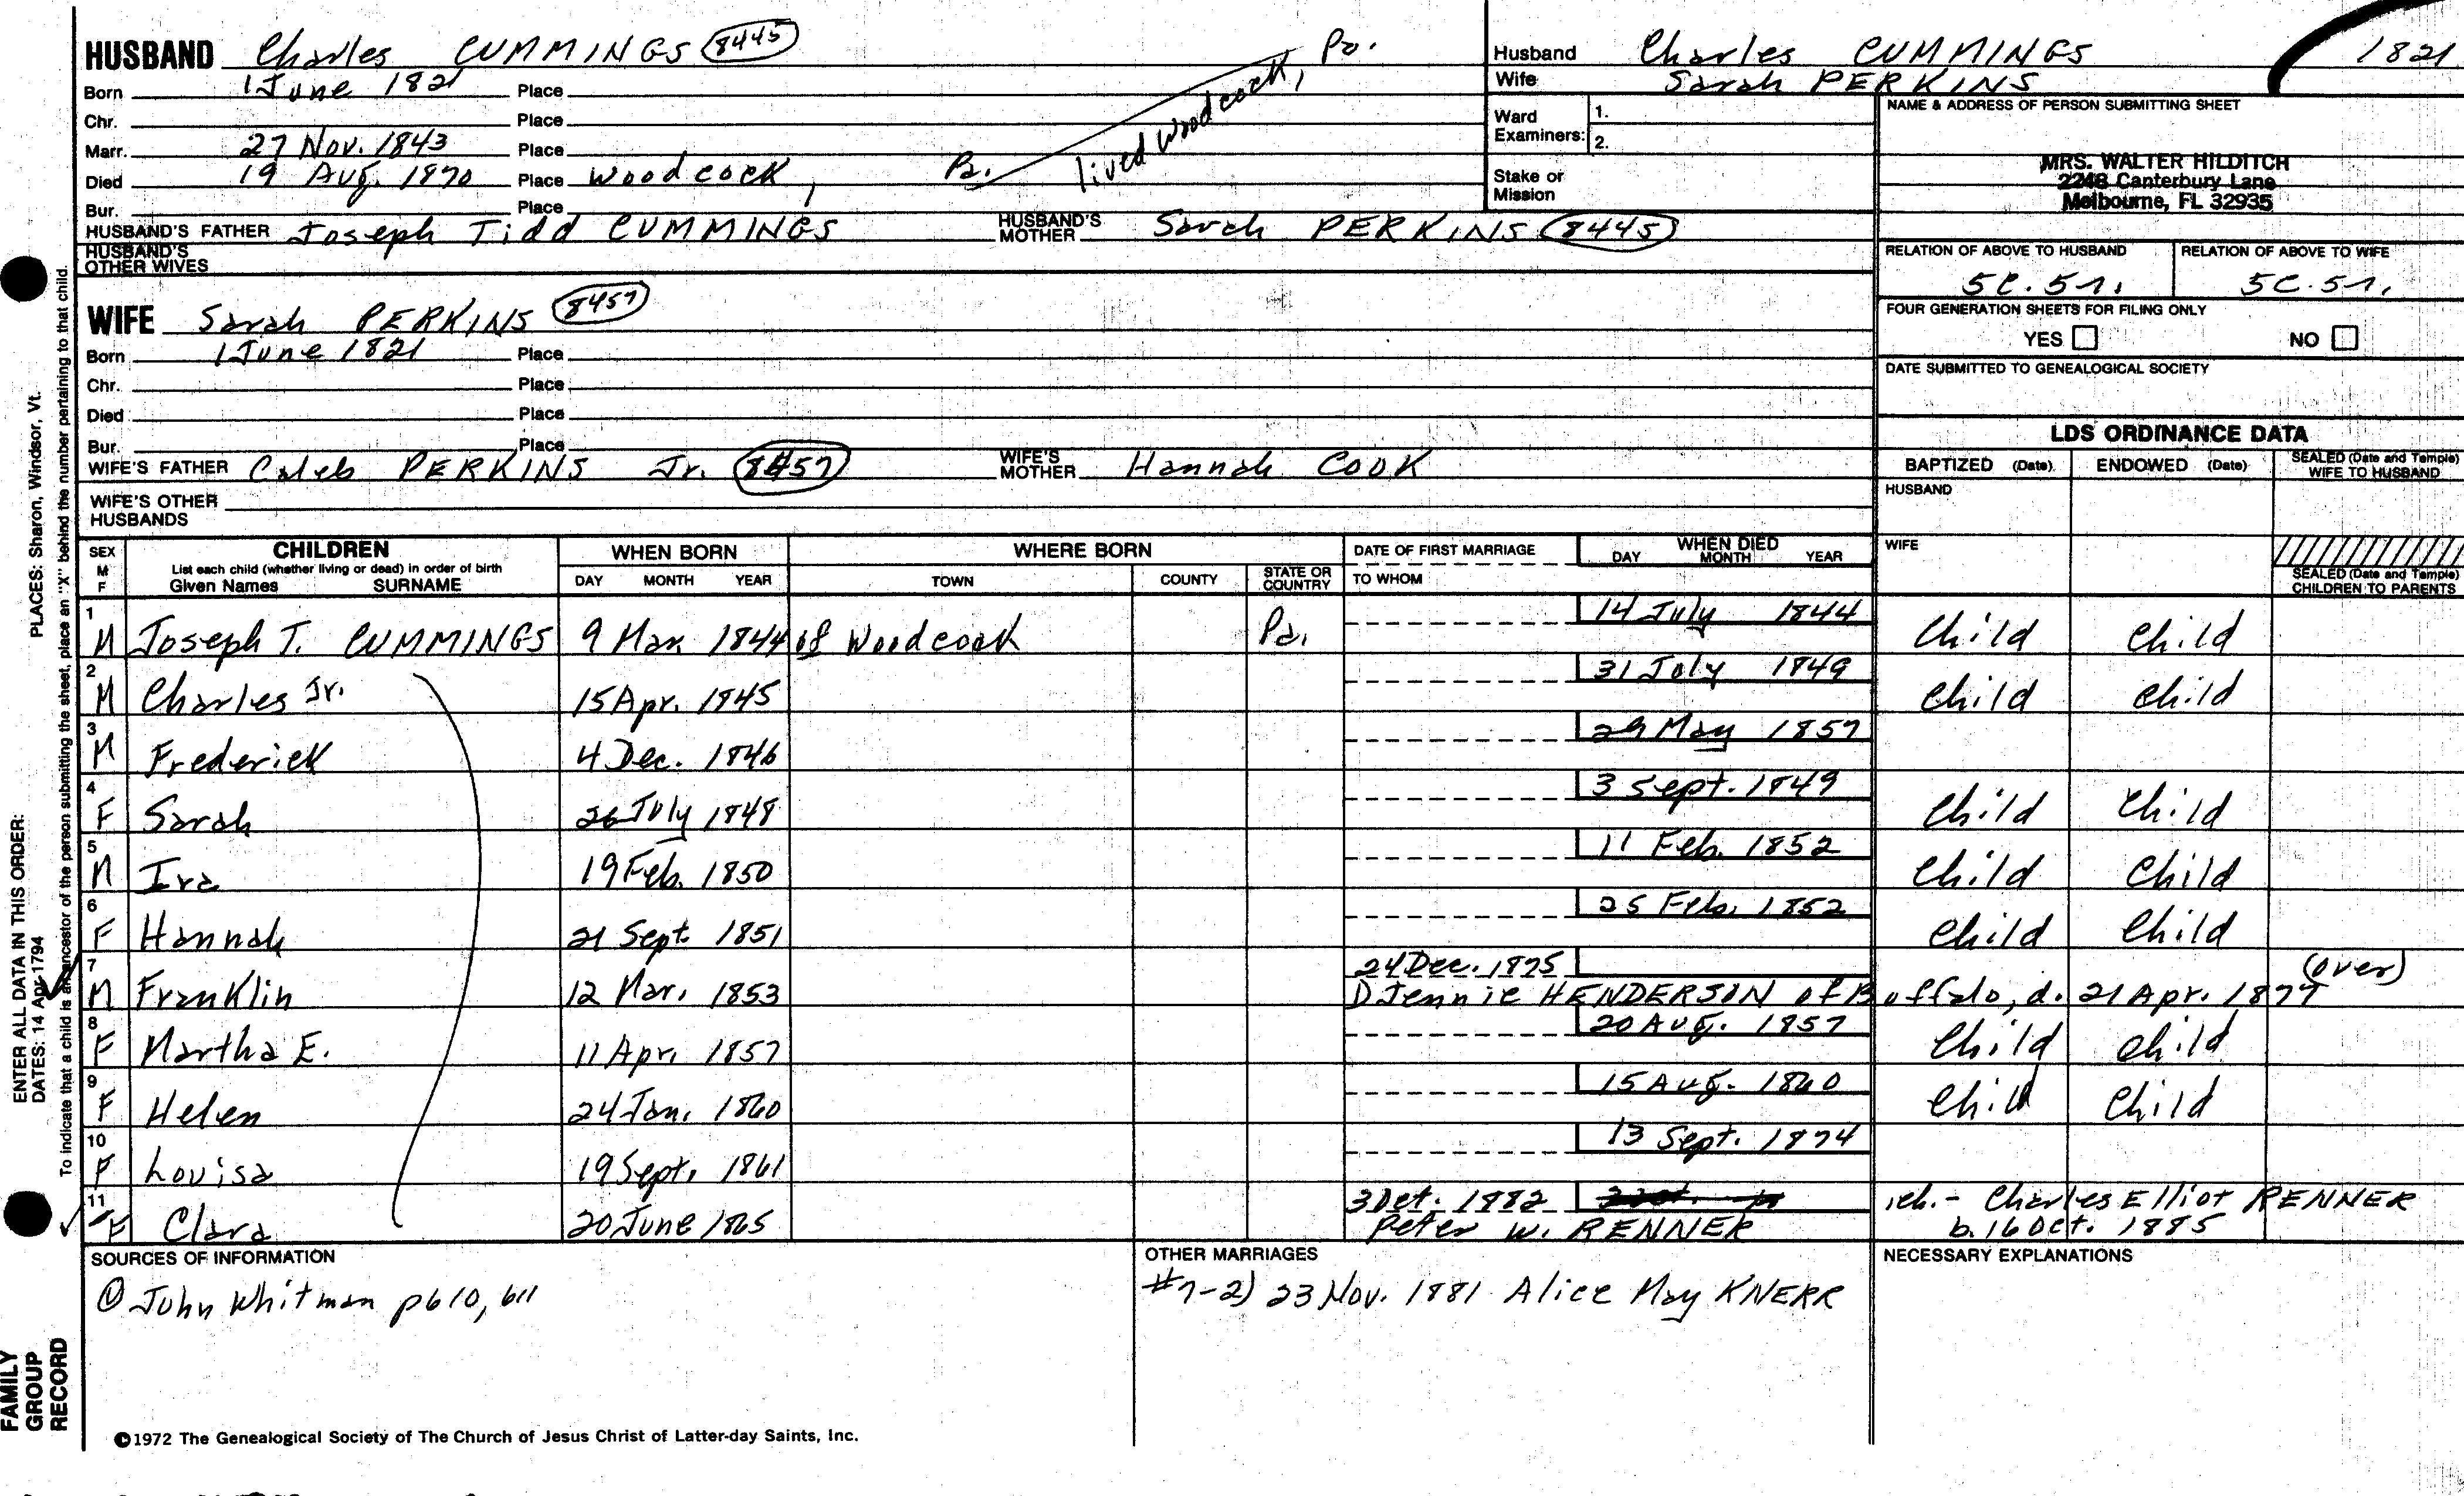 HUSBAND Charles CUMMINGS 8445
Born 1 June 1821 Place
Chr. Place
Marr. 27 Nov. 1843 Place
Died 19 Aug. 1870 Place Woodcock, Pa.
lived Woodcock, Pa.
Bur. Place
HUSBAND'S FATHER Joseph Tidd CUMMINGS HUSBAND'S MOTHER Sarah PERKINS 8445
HUSBAND'S OTHER WIVES
WIFE Sarah PERKINS 8457
Born 1 June 1821 Place
Chr. Place
Died Place
Bur. Place
WIFE'S FATHER Caleb PERKINS Jr. 8457 WIFE'S MOTHER Hannah COOK
WIFE'S OTHER HUSBANDS
Husband Charles CUMMINGS 1821
Wife Sarah PERKINS
Ward Examiners: 1.
2.
Stake or Mission
NAME & ADDRESS OF PERSON SUBMITTING SHEET
MRS. WALTER HILDITCH
2248 Canterbury Lane
Melbourne, FL 32935
RELATION OF ABOVE TO HUSBAND RELATION OF ABOVE TO WIFE
5C.5r. 5C.5r.
FOUR GENERATION SHEETS FOR FILING ONLY
YES NO
DATE SUBMITTED TO GENEALOGICAL SOCIETY
LDS ORDINANCE DATA
BAPTIZED (Date) ENDOWED (Date) SEALED (Date and Temple) WIFE TO HUSBAND
HUSBAND
WIFE
SEALED (Date and Temple) CHILDREN TO PARENTS
SEX M F CHILDREN List each child (whether living or dead) in order of birth Given Names SURNAME WHEN BORN DAY MONTH YEAR WHERE BORN TOWN COUNTY STATE OR COUNTRY DATE OF FIRST MARRIAGE TO WHOM WHEN DIED DAY MONTH YEAR
1 M Joseph T. CUMMINGS 9 Mar 1844 of Woodcock Pa. 14 July 1844 Child Child
2 M Charles Jr. 15 Apr. 1845 31 July 1849 Child Child
3 M Frederick 4 Dec. 1846 29 May 1857
4 F Sarah 26 July 1848 3 Sept. 1849 Child Child
5 M Ira 19 Feb. 1850 11 Feb. 1852 Child Child
6 F Hannah 21 Sept. 1851 25 Feb. 1852 Child Child
7 M Franklin 12 Mar. 1853 24 Dec. 1875 (over)
1) Jennie HENDERSON of Buffalo, d. 21 Apr. 1877
8 F Martha E. 11 Apr. 1857 20 Aug. 1857 Child Child
9 F Helen 24 Jan. 1860 15 Aug. 1860 Child Child
10 F Louisa 19 Sept. 1861 13 Sept. 1874
11 F Clara 20 June 1865 3 Oct. 1882 1ch.- Charles Elliot RENNER
Peter W. RENNER b. 16 Oct. 1885
SOURCES OF INFORMATION
① John Whitman p610, 611
OTHER MARRIAGES
#7-2) 23 Nov. 1881 Alice May KNERR
NECESSARY EXPLANATIONS
©1972 The Genealogical Society of The Church of Jesus Christ of Latter-day Saints, Inc.
FAMILY GROUP RECORD
ENTER ALL DATA IN THIS ORDER: PLACES: Sharon, Windsor, Vt.
DATES: 14 Apr 1794
To indicate that a child is an ancestor of the person submitting the sheet, place an "X" behind the number pertaining to that child.